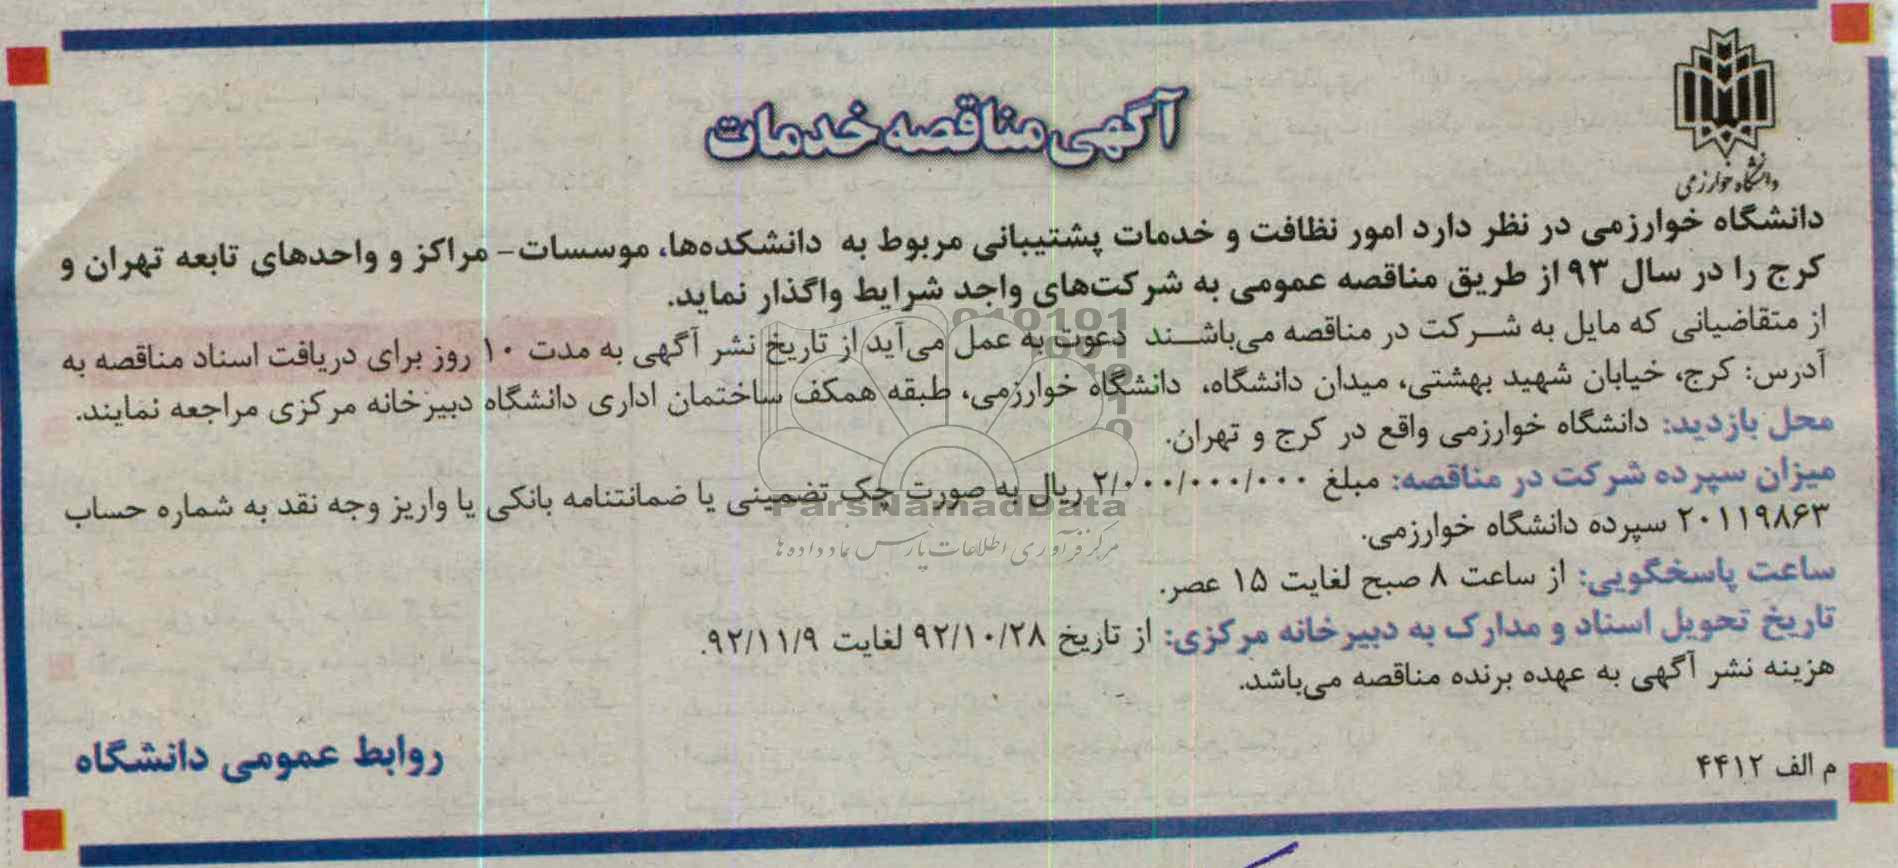 دانشگاه خوارزمی
آگهی مناقصه خدمات
دانشگاه خوارزمی در نظر دارد امور نظافت و خدمات پشتیبانی مربوط به دانشکده‌ها، موسسات- مراکز و واحدهای تابعه تهران و
کرج را در سال ۹۳ از طریق مناقصه عمومی به شرکت‌های واجد شرایط واگذار نماید.
از متقاضیانی که مایل به شرکت در مناقصه می‌باشند دعوت به عمل می‌آید از تاریخ نشر آگهی به مدت ۱۰ روز برای دریافت اسناد مناقصه به
آدرس: کرج، خیابان شهید بهشتی، میدان دانشگاه، دانشگاه خوارزمی، طبقه همکف ساختمان اداری دانشگاه دبیرخانه مرکزی مراجعه نمایند.
محل بازدید: دانشگاه خوارزمی واقع در کرج و تهران.
میزان سپرده شرکت در مناقصه: مبلغ ۲/۰۰۰/۰۰۰/۰۰۰ ریال به صورت چک تضمینی یا ضمانتنامه بانکی یا واریز وجه نقد به شماره حساب
۲۰۱۱۹۸۶۳ سپرده دانشگاه خوارزمی.
ساعت پاسخگویی: از ساعت ۸ صبح لغایت ۱۵ عصر.
تاریخ تحویل اسناد و مدارک به دبیرخانه مرکزی: از تاریخ ۹۲/۱۰/۲۸ لغایت ۹۲/۱۱/۹.
هزینه نشر آگهی به عهده برنده مناقصه می‌باشد.
م الف ۴۴۱۲
روابط عمومی دانشگاه
ParsNamadData
مرکز فرآوری اطلاعات پارس نماد داده ها